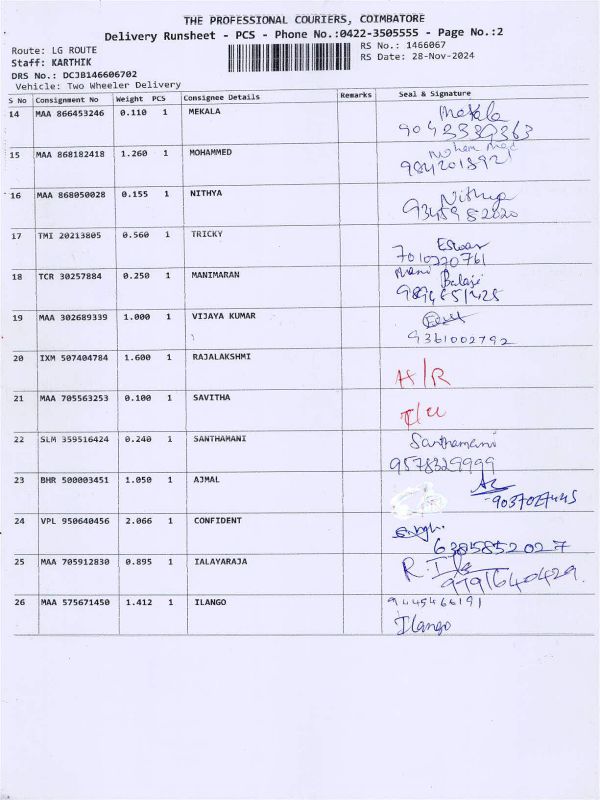 THE PROFESSIONAL COURIERS, COIMBATORE
Delivery Runsheet - PCS - Phone No.:0422-3505555 - Page No.:2
Route: LG ROUTE
RS No.: 1466067
Staff: KARTHIK
RS Date: 28-Nov-2024
DRS No.: DC3B146606702
Vehicle: Two Wheeler Delivery
S No Consignment No Weight PCS Consignee Details Remarks Seal & Signature
14 MAA 866453246 0.110 1 MEKALA Mekala
9042339363
15 MAA 868182418 1.260 1 MOHAMMED
9842018921
16 MAA 868050028 0.155 1 NITHYA Nithya
9345982020
17 TMI 20213805 0.560 1 TRICKY Eswar
7010220761
18 TCR 30257884 0.250 1 MANIMARAN Mani Balaji
9894651425
19 MAA 302689339 1.000 1 VIJAYA KUMAR
9361002792
20 IXM 507404784 1.600 1 RAJALAKSHMI A/R
21 MAA 705563253 0.100 1 SAVITHA
22 SLM 359516424 0.240 1 SANTHAMANI Santhamani
9578329999
23 BHR 500003451 1.050 1 AJMAL
9037027445
24 VPL 950640456 2.066 1 CONFIDENT
6385852027
25 MAA 705912830 0.895 1 IALAYARAJA R. Ila
9791640429.
26 MAA 575671450 1.412 1 ILANGO 9445466191
Ilango